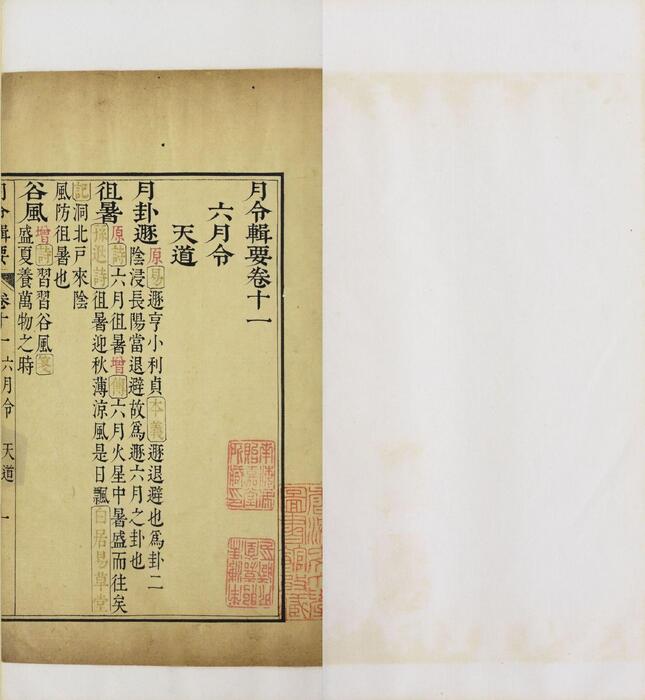 月令輯要卷十一
六月令
天道
月卦遯原易遯亨小利貞本義遯退避也爲卦二
陰浸長陽當退避故爲遯六月之卦也
徂暑原詩六月徂暑增傳六月火星中暑盛而往矣
孫逖詩徂暑迎秋薄涼風是日飄白居易草堂
記洞北戶來陰
風防徂暑也
谷風增詩習習谷風箋
盛夏養萬物之時
月令輯要 卷十一 六月令 天道 一